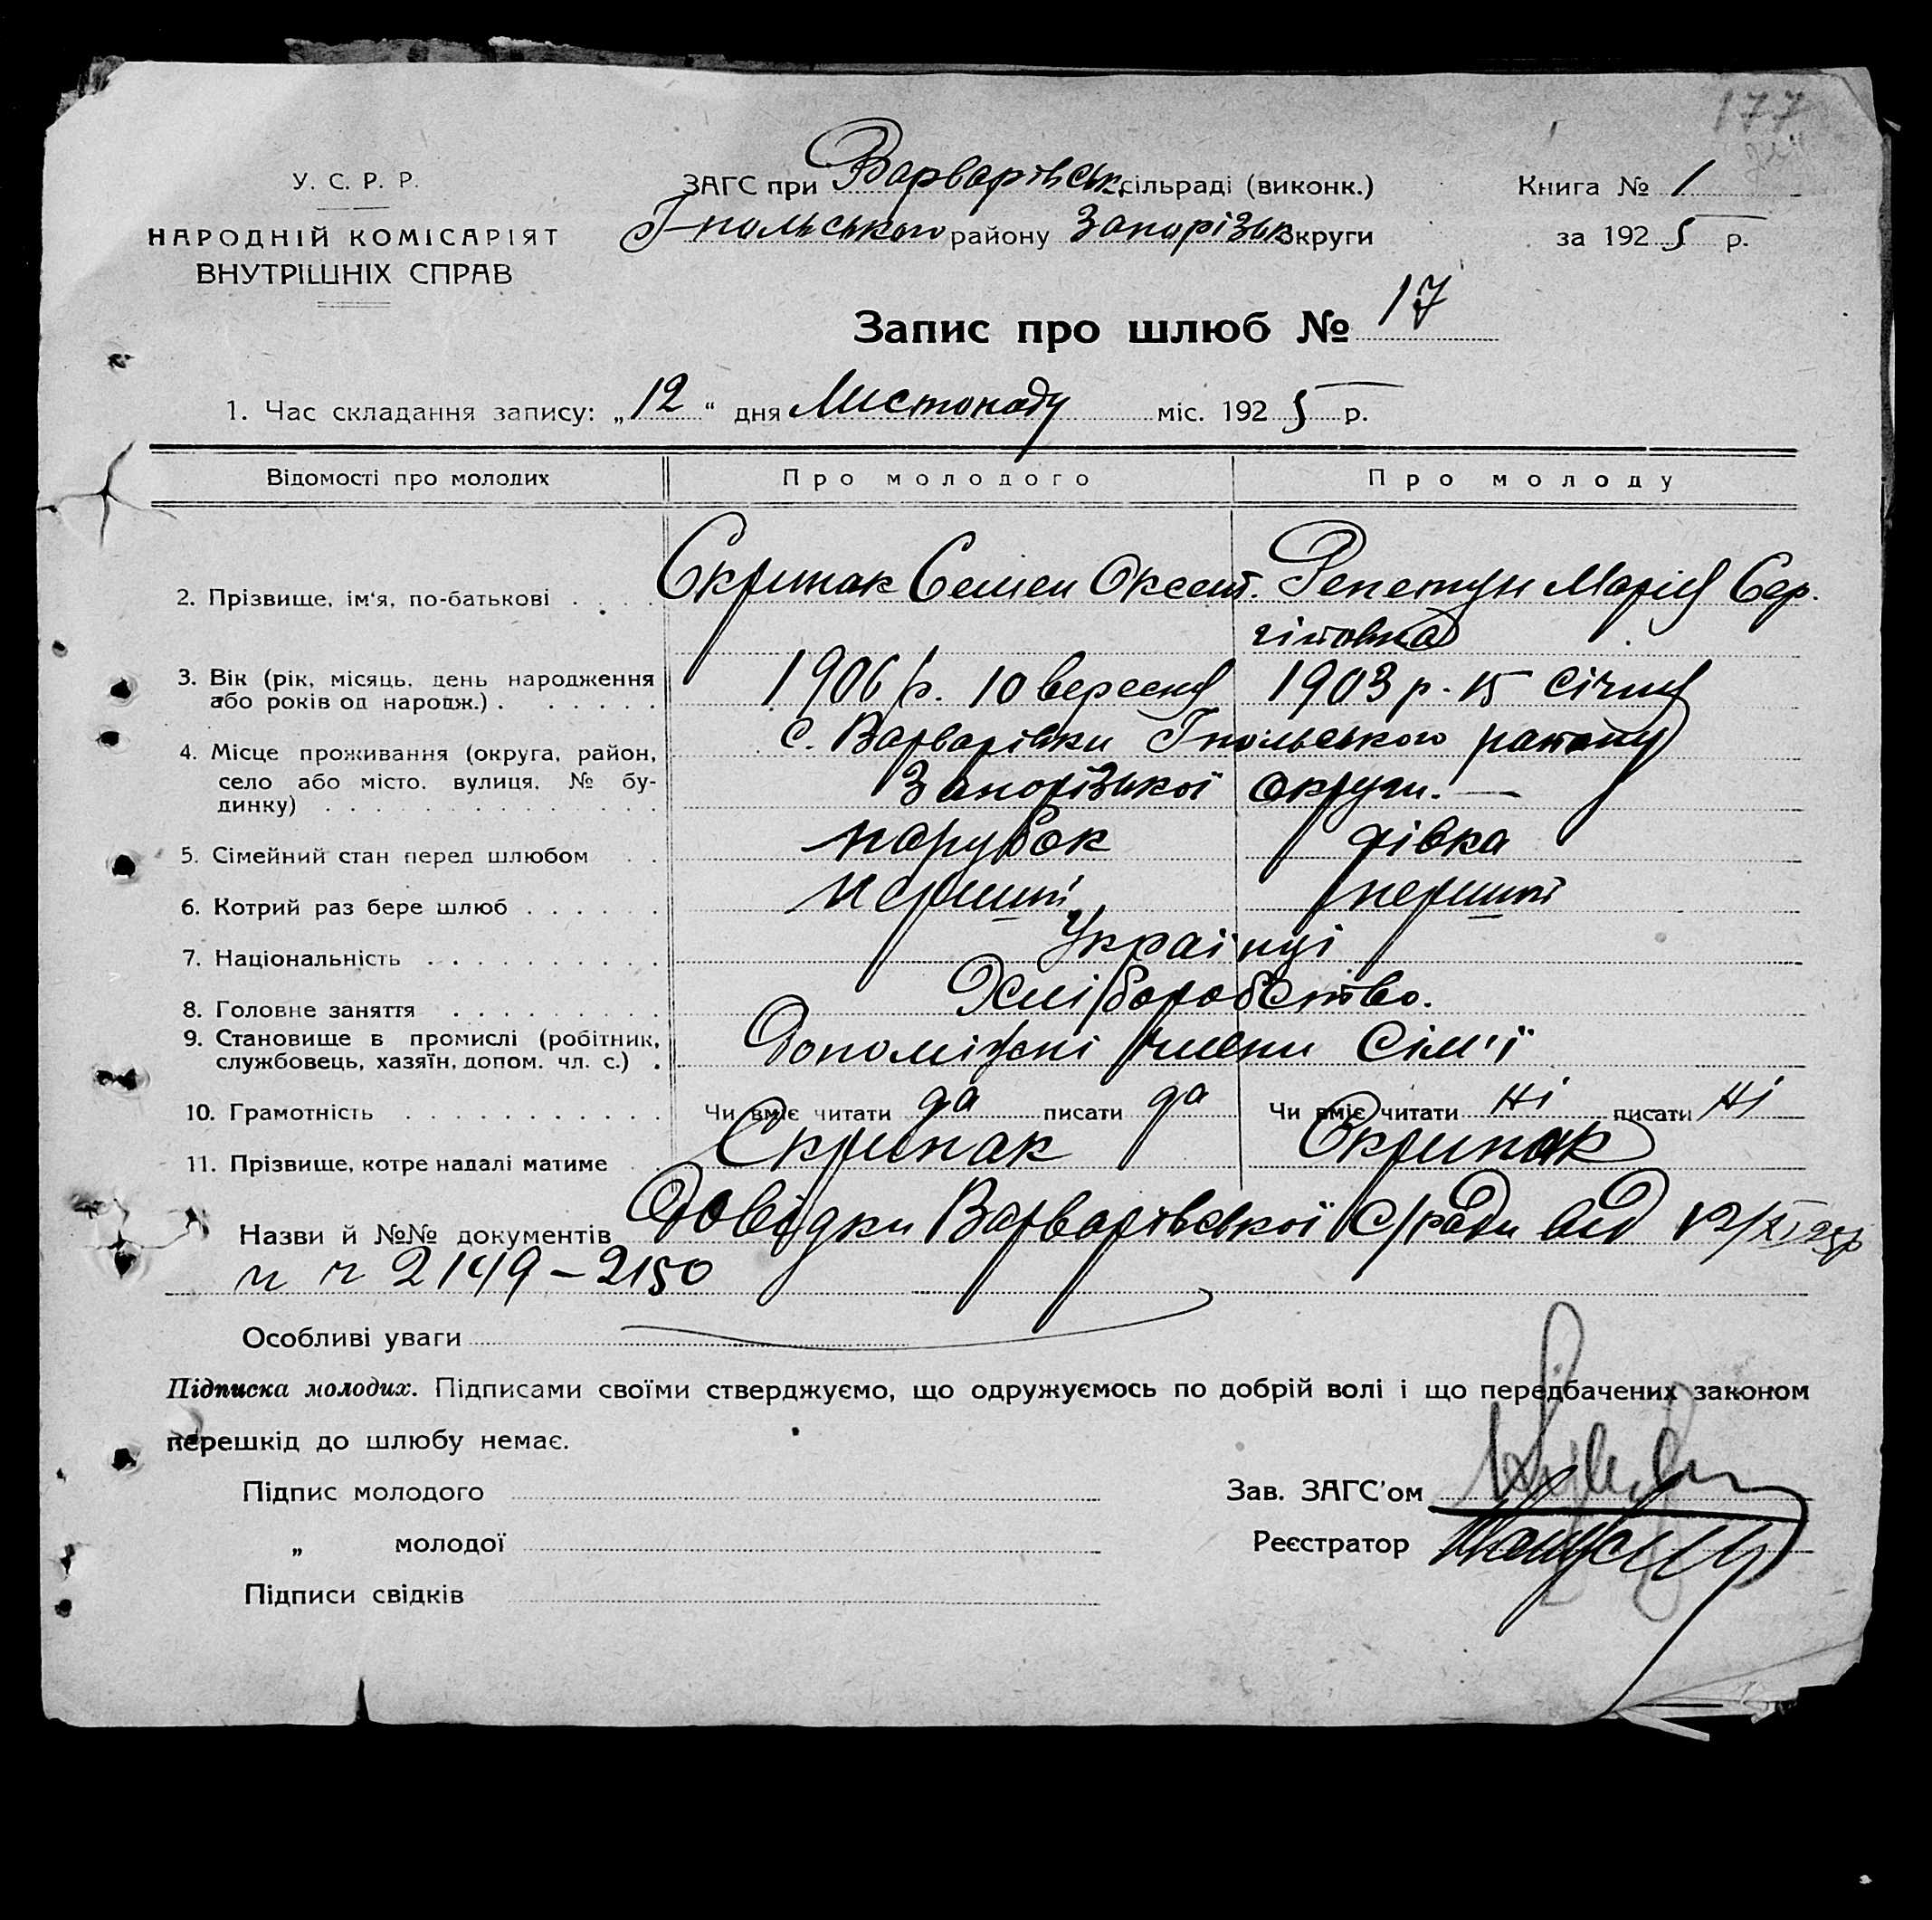 177
У. С. Р. Р.
НАРОДНІЙ КОМІСАРІЯТ
ВНУТРІШНІХ СПРАВ
ЗАГС при Варварівськ. сільраді (виконк.)
Гпольського району Запорізьк округи
Книга № 1
за 1925 р.
Запис про шлюб № 17
1. Час складання запису: „12“ дня Листопаду міс. 1925 р.
Відомості про молодих Про молодого Про молоду
2. Прізвище, ім'я, по-батькові . . . . Скрипак Семен Оксент. Репетун Марія Сер.
гіївна
3. Вік (рік, місяць, день народження
або років од народж.) . . . . . . 1906 р. 10 вересня 1903 р. 15 Січня
4. Місце проживання (округа, район,
село або місто, вулиця, № бу-
динку) . . . . . . . . . . . . .
с. Варварівки Гпольського району
Запорізької округи. —
5. Сімейний стан перед шлюбом . . парубок дівка
6. Котрий раз бере шлюб . . . . . . перший перший
7. Національність . . . . . . . . . . Українці
8. Головне заняття . . . . . . . . . Хліборобство.
9. Становище в промислі (робітник,
службовець, хазяїн, допом. чл. с.) . Допоміжні члени Сім'ї
10. Грамотність . . . . . . . . . . . Чи вміє читати да писати да Чи вміє читати ні писати ні
11. Прізвище, котре надалі матиме . . Скрипак Скрипак
Назви й №№ документів Довідки Варварівської С/ради від 12/XI 25р
ч ч 2149-2150
Особливі уваги
Підписка молодих. Підписами своїми стверджуємо, що одружуємось по добрій волі і що передбачених законом
перешкід до шлюбу немає.
Підпис молодого
„ молодої
Підписи свідків
Зав. ЗАГС'ом
Реєстратор